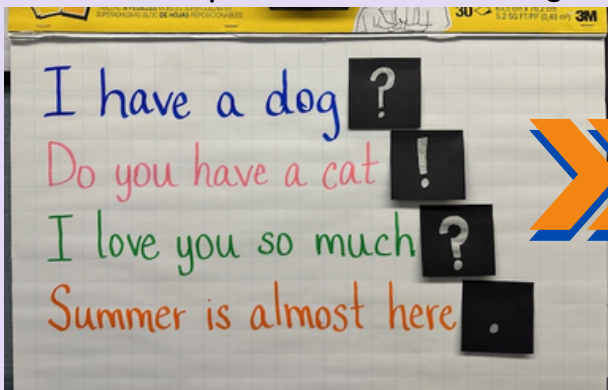 30
3M
I have a dog ?
Do you have a cat !
I love you so much ?
Summer is almost here .